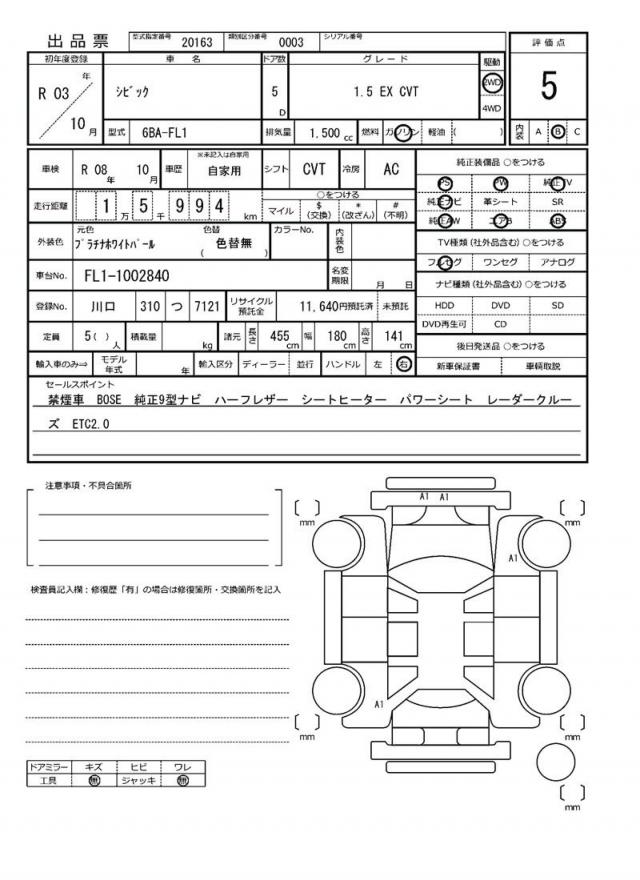 出品票 型式指定番号 20163 類別区分番号 0003 シリアル番号
初年度登録 車名 ドア数 グレード 駆動 評価点
R 03 年 10 月 シビック 5 D 1.5 EX CVT 2WD 4WD 5
型式 6BA-FL1 排気量 1.500 cc 燃料 ガソリン 軽油 ( ) 内装 A B C
車検 R 08 年 10 月 車歴 ※未記入は自家用 自家用 シフト CVT 冷房 AC
純正装備品 ○をつける
PS PW 純正TV
純正ナビ 革シート SR
純正AW エアB ABS
走行距離 1 万 5 千 9 9 4 km ○をつける マイル $ (交換) * (改ざん) # (不明)
外装色 元色 プラチナホワイトパール 色替 ( 色替無 ) カラーNo. 内装色
TV種類 (社外品含む) ○をつける
フルセグ ワンセグ アナログ
車台No. FL1-1002840 名変期限 月 日
ナビ種類 (社外品含む) ○をつける
登録No. 川口 310 つ 7121 リサイクル預託金 11,640円預託済 未預託
HDD DVD SD
DVD再生可 CD
定員 5( ) 人 積載量 kg 諸元 長さ 455 cm 幅 180 cm 高さ 141 cm
後日発送品 ○をつける
輸入車のみ⇒ モデル年式 年 輸入区分 ディーラー 並行 ハンドル 左 右
新車保証書 車輌取説
セールスポイント
禁煙車 BOSE 純正9型ナビ ハーフレザー シートヒーター パワーシート レーダークルー
ズ ETC2.0
注意事項・不具合箇所
A1 A1
mm mm
A1
検査員記入欄：修復歴「有」の場合は修復箇所・交換箇所を記入
A1
mm mm
ドアミラー キズ ヒビ ワレ
工具 無 ジャッキ 無
mm